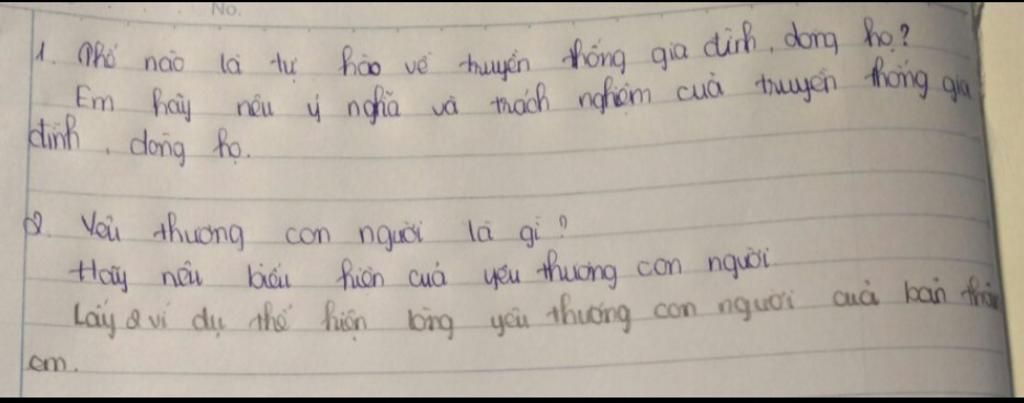 No.
1. Thế nào là tự hào về truyền thống gia đình, dòng họ?
Em hãy nêu ý nghĩa và trách nghiệm của truyền thống gia
đình, dòng họ.
2. Yêu thương con người là gì?
Hãy nêu biểu hiện của yêu thương con người
Lấy 2 ví dụ thể hiện lòng yêu thương con người của bản thân
em.